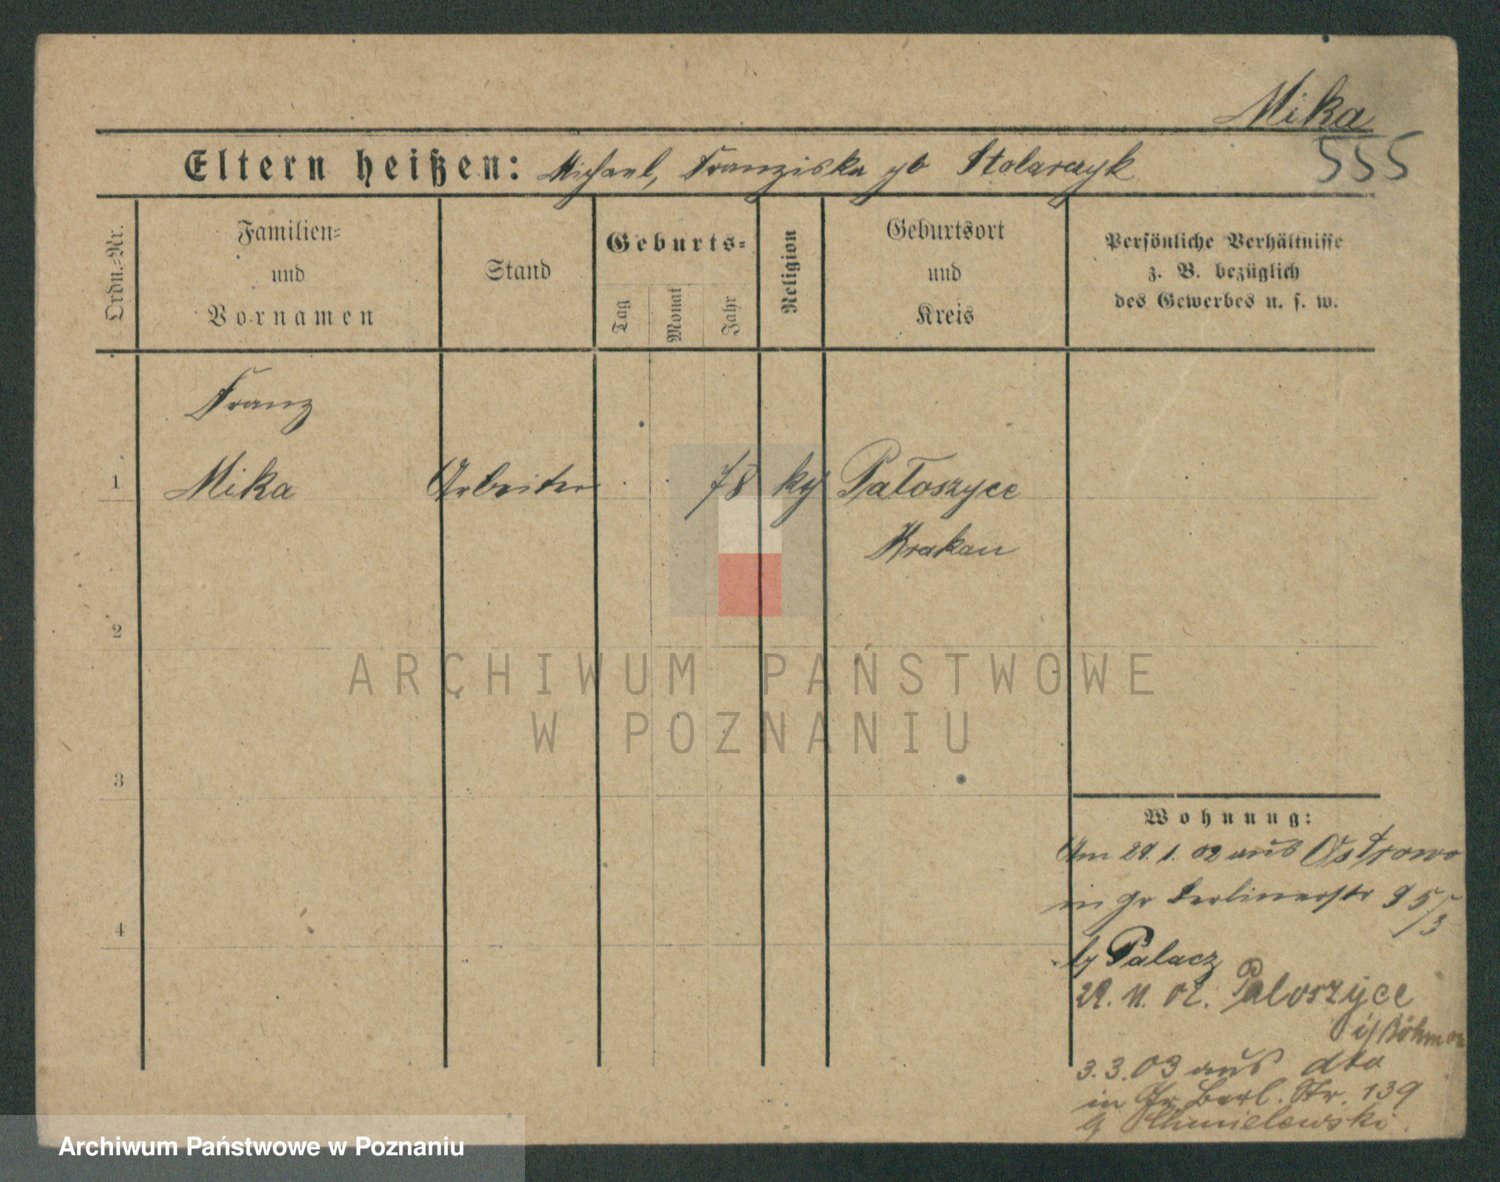 Mika
555
Eltern heißen: Michael, Franziska gb Stolarczyk
Ordn.-Nr.
Familien-
und
Vornamen
Stand
Geburts-
Tag
Monat
Jahr
Religion
Geburtsort
und
Kreis
Persönliche Verhältnisse
z. B. bezüglich
des Gewerbes u. s. w.
Franz
1 Mika Arbeiter 78 kg Pałoszyce
Krakau
2
ARCHIWUM PAŃSTWOWE
W POZNANIU
3
Wohnung:
Am 29.1.02 aus Ostrowo
in gr Berlinerstr 95/3
by Palacz
29. 11. 02. Paloszyce
i/Böhmen
3.3.03 aus dto
in Gr. Berl. Str. 139
Chmielewski.
4
Archiwum Państwowe w Poznaniu